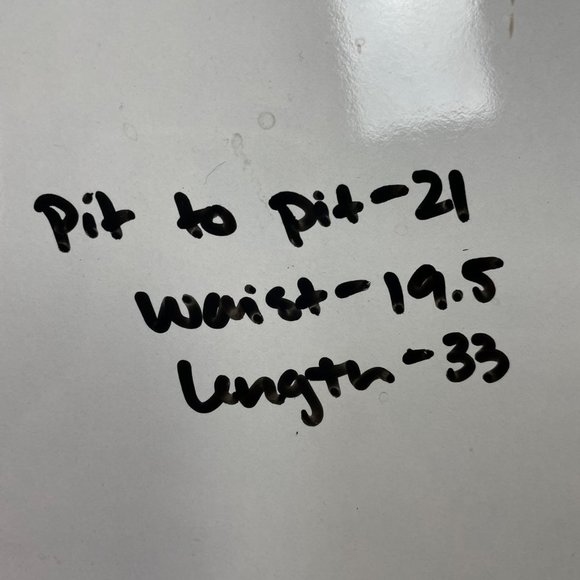 Pit to pit-21
waist-19.5
length-33